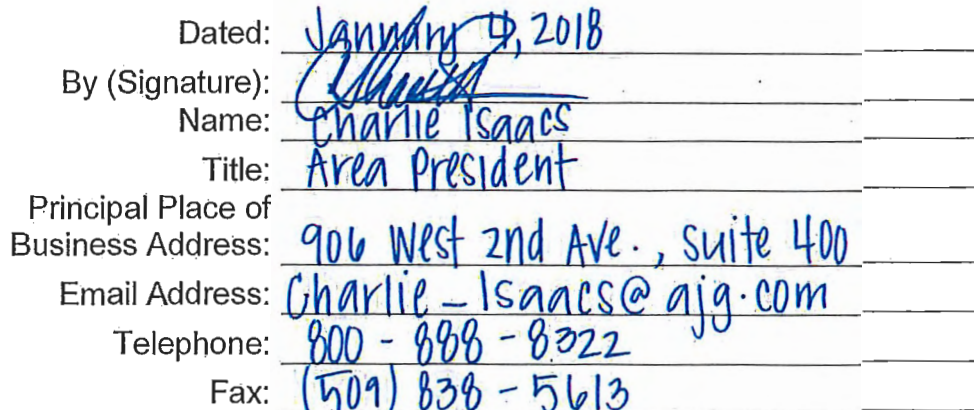 Dated: January 4, 2018
By (Signature):
Name: Charlie Isaacs
Title: Area President
Principal Place of
Business Address: 906 West 2nd Ave., Suite 400
Email Address: Charlie_Isaacs@ajg.com
Telephone: 800-888-8322
Fax: (509) 838-5613